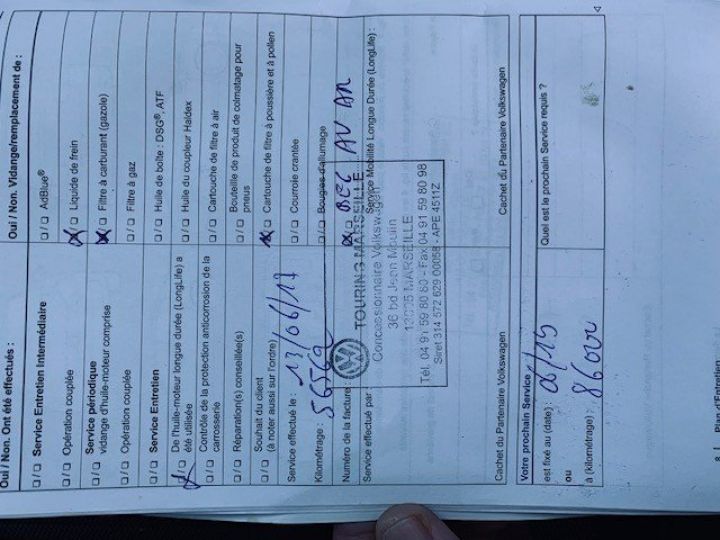 Oui / Non. Ont été effectués :
☐ / ☐ Service Entretien Intermédiaire
☐ / ☐ Opération couplée
☐ / ☐ Service périodique
vidange d'huile-moteur comprise
☐ / ☐ Opération couplée
☐ / ☐ Service Entretien
☒ / ☐ De l'huile-moteur longue durée (LongLife) a
été utilisée
☐ / ☐ Contrôle de la protection anticorrosion de la
carrosserie
☐ / ☐ Réparation(s) conseillée(s)
☐ / ☐ Souhait du client
(à noter aussi sur l'ordre)
Service effectué le : 13/06/17
Kilométrage : 56562
Numéro de la facture :
Service effectué par
Cachet du Partenaire Volkswagen
Oui / Non. Vidange/remplacement de :
☐ / ☐ AdBlue®
☒ / ☐ Liquide de frein
☒ / ☐ Filtre à carburant (gazole)
☐ / ☐ Filtre à gaz
☐ / ☐ Huile de boîte : DSG®, ATF
☐ / ☐ Huile du coupleur Haldex
☐ / ☐ Cartouche de filtre à air
☐ / ☐ Bouteille de produit de colmatage pour
pneus
☒ / ☐ Cartouche de filtre à poussière et à pollen
☐ / ☐ Courroie crantée
☐ / ☐ Bougies d'allumage
☒ / ☐ AV AR
Service Mobilité Longue Durée (LongLife) :
Cachet du Partenaire Volkswagen
TOURING MARSEILLE
Concessionnaire Volkswagen
36 bd Jean Moulin
13005 MARSEILLE
Tél. 04 91 59 80 80 - Fax 04 91 59 80 98
Siret 314 572 629 00058 - APE 4511Z
Votre prochain Service
est fixé au (date) : 06/19
ou
à (kilométrage) : 86000
Quel est le prochain Service requis ?